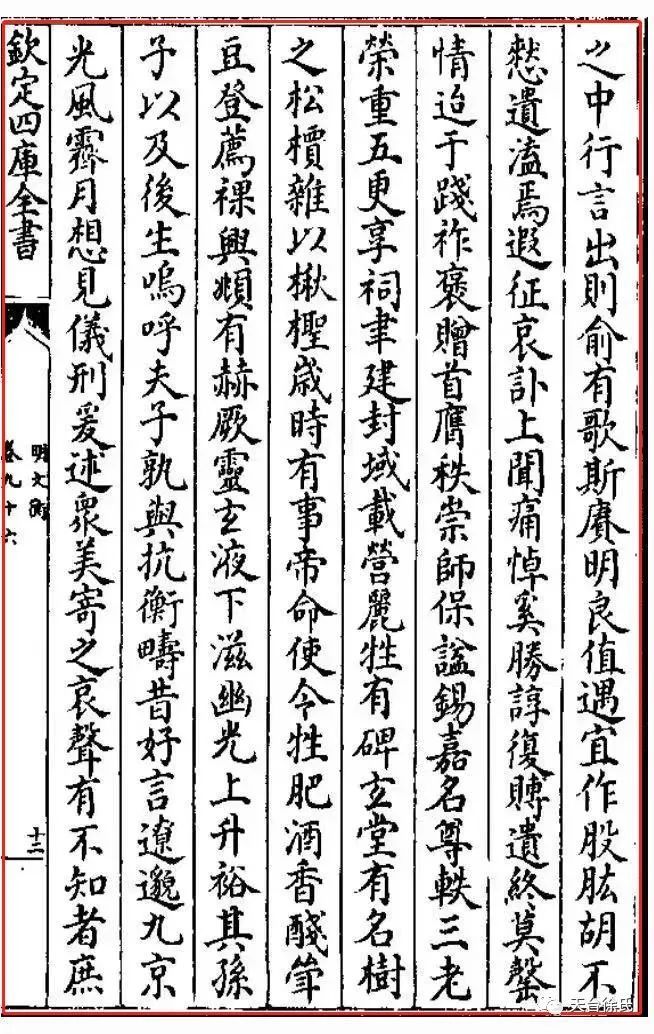 之中行言出則俞有歌斯賡明良值遇宜作股肱胡不
憖遺溘焉遐征哀訃上聞痛悼奚勝諄復賻遺終莫罄
情迨于踐祚褒贈首膺秩崇師保謚錫嘉名尊軼三老
榮重五更享祠聿建封域載營麗牲有碑玄堂有名樹
之松檟雜以楸檉歳時有事帝命使令牲肥酒香醆斚
豆登薦祼興頫有赫厥靈玄液下滋幽光上升裕其孫
子以及後生嗚呼夫子孰與抗衡疇昔好言遼邈九京
光風霽月想見儀刑爰述衆美寄之哀聲有不知者庶
欽定四庫全書
明文衡
卷九十六
十三
天台徐氏